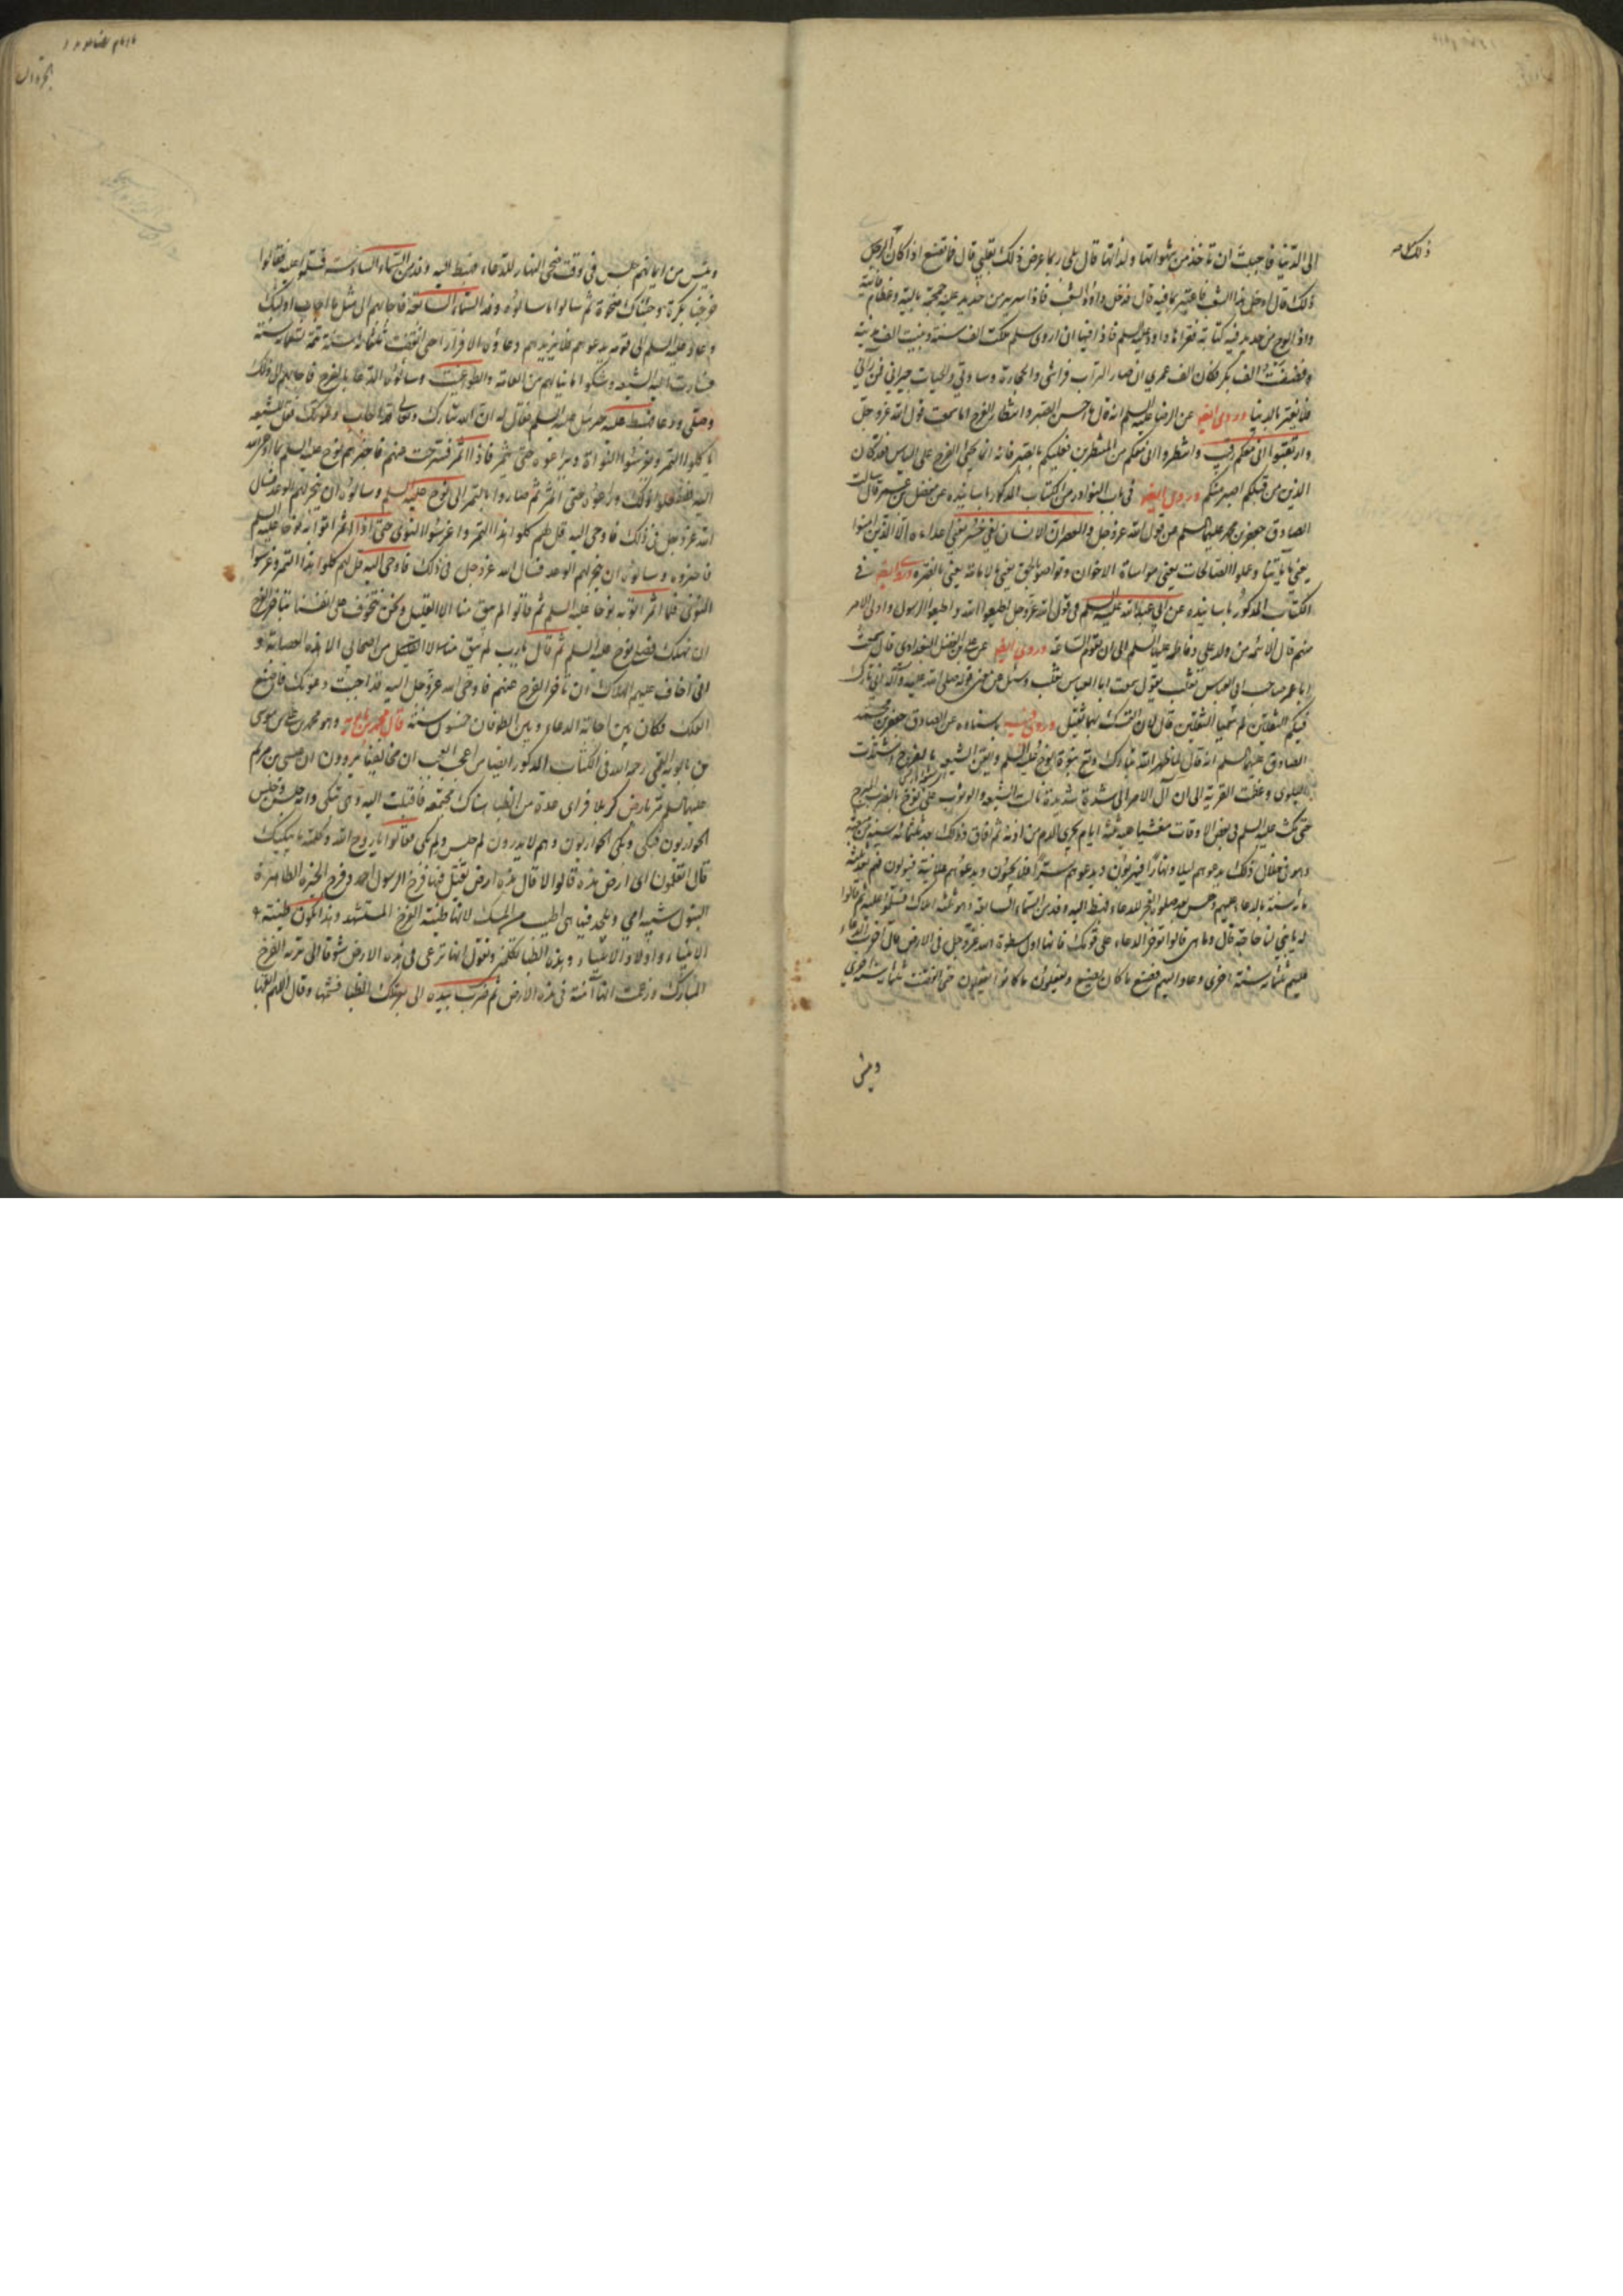 الى الدنيا فاحببت ان تاخذ من شهواتها ولذاتها قال بلى ربما عرض ذلك بقلبي قال فما تصنع اذا كان
ذلك قال ادخل هذا الشعب فاعتبر بما فيه قال فدخل داود الشعب فاذا سرير من حديد عليه جمجمة بالية وعظام فانية
واذا لوح من حديد فيه كتابة فقراها داود عليه السلم فاذا فيها انا اروى سلم ملكت الف سنة وبنيت الف مدينة
وافتضضت الف بكر فكان اخر عمري ان صار التراب فراشي والحجارة وسادتي والحيات جيراني فمن راني
فلا يغتر بالدنيا وروى ايضا عن الرضا عليه السلم انه قال ما احسن الصبر وانتظار الفرج اما سمعت قول الله عز وجل
وارتقبوا اني معكم رقيب وانتظروا اني معكم من المنتظرين فعليكم بالصبر فانه انما يجئ الفرج على الياس فقد كان
الذين من قبلكم اصبر منكم وروى ايضا في باب النوادر من الكتاب المذكور باسانيده عن مفضل بن عمر قال سالت
الصادق جعفر بن محمد عليهما السلم عن قول الله عز وجل والعصر ان الانسان لفي خسر يعني اعداءنا الا الذين امنوا
يعني باياتنا وعملوا الصالحات يعني مواساة الاخوان وتواصوا بالحق يعني بالامامة يعني بالفترة وروى ايضا في
الكتاب المذكور باسانيده عن ابي عبدالله عليه السلم في قول الله عز وجل اطيعوا الله واطيعوا الرسول واولى الامر
منكم قال الائمة من ولد علي وفاطمة عليهما السلم الى ان تقوم الساعة وروى ايضا عن علي بن الفضل البغدادي قال سمعت
ابا عمر صاحب ابي العباس ثعلب يقول سمعت ابا العباس ثعلب وسئل عن معنى قوله صلى الله عليه وآله اني تارك
فيكم الثقلين لم سميا الثقلين قال لان التمسك بهما ثقيل وروى فيه باسناده عن الصادق جعفر بن محمد
الصادق عليهما السلم انه قال لما ظهر الله تبارك وتع نبوة نوح عليه السلم وايقن الشيعة بالفرج واشتدت
البلوى وعظمت الفرية الى ان آل الامر الى شدة شديدة نالت الشيعة والوثوب على نوح بالضرب المبرح
حتى مكث عليه السلم في بعض الاوقات مغشيا عليه ثلثة ايام يجري الدم من اذنه ثم افاق وذلك بعد ثلثمائة سنة من مبعثه
وهو في خلال ذلك يدعوهم ليلا ونهارا فيهربون ويدعوهم سترا فلا يجيبون ويدعوهم علانية فيولون فهم بعد ثلث
مائة سنة بالدعاء عليهم وجلس بعد صلوة الفجر للدعاء فهبط اليه وفد من السماء السابعة وهو ثلثة املاك فسلموا عليه ثم قالوا
له يا نبي لنا حاجة قال وما هي قالوا تؤخر الدعاء على قومك فانها اول سطوة لله عز وجل في الارض قال اخرت الدعاء
عليهم ثلثمائة سنة اخرى وعاد اليهم فصنع ما كان يصنع ويفعلون ما كانوا يفعلون حتى انقضت ثلثمائة سنة اخرى
ويئس
ويئس من ايمانهم جلس في وقت ضحى النهار للدعاء فهبط اليه وفد من السماء السادسة فسلموا عليه فقالوا
خرجنا بكرة وجئناك ضحوة ثم سالوا ما سالوه وفد السماء السابعة فاجابهم الى مثل ما اجاب اولئك
وعاد عليه السلم الى قومه يدعوهم فلا يزيدهم دعاؤه الا فرارا حتى انقضت ثلثمائة سنة تتمة تسعمائة سنة
فصارت اليه الشيعة وشكوا ما ينالهم من العامة والطواغيت وسالوه الدعاء بالفرج فاجابهم الى ذلك
وصلى ودعا فهبط عليه جبرئيل عليه السلم فقال له ان الله تبارك وتعالى قد اجاب دعوتك فقل للشيعة
ياكلوا التمر ويغرسوا النواة ويراعوه حتى يثمر فاذا اثمر فرجت عنهم فاخبرهم نوح عليه السلم
ففعلوا ذلك وراعوه حتى اثمر ثم صاروا بالتمر الى نوح عليه السلم وسالوه ان ينجز لهم الوعد فسال
الله عز وجل في ذلك فاوحى اليه قل لهم كلوا هذا التمر واغرسوا النوى حتى اذا اثمر اتوا به نوحا عليه السلم
فاخبروه وسالوه ان ينجز لهم الوعد فسال الله عز وجل في ذلك فاوحى اليه قل لهم كلوا هذا التمر واغرسوا
النوى فلما اثمر اتوا به نوحا عليه السلم ثم قالوا لم يبق منا الا القليل ونحن نتخوف على انفسنا بتاخر الفرج
ان نهلك فصلى نوح عليه السلم ثم قال يا رب لم يبق من اصحابي الا هذه العصابة و
اني اخاف عليهم الهلاك ان تاخر الفرج عنهم فاوحى الله عز وجل اليه قد اجبت دعوتك فاصنع
الفلك فكان بين اجابة الدعاء وبين الطوفان خمسون سنة قال محمد بن بابويه وهو محمد بن علي بن موسى
بن بابويه القمي رحمه الله في الكتاب المذكور ايضا من اعجب العجب ان مخالفينا يروون ان عيسى بن مريم
عليهما السلم مر بارض كربلا فراى عدة من الظباء هناك مجتمعة فاقبلت اليه وهي تبكي وانه جلس وجلس
الحواريون فبكى وبكى الحواريون وهم لا يدرون لم جلس ولم بكى فقالوا يا روح الله وكلمته ما يبكيك
قال اتعلمون اي ارض هذه قالوا لا قال هذه ارض يقتل فيها فرخ الرسول احمد وفرخ الحرة الطاهرة
البتول شبيهة امي ويلحد فيها هي اطيب من المسك لانها طينة الفرخ المستشهد وهكذا تكون طينة
الانبياء واولاد الانبياء وهذه الظباء تكلمني وتقول انها ترعى في هذه الارض شوقا الى تربة الفرخ
المبارك وزعمت انها آمنة في هذه الارض ثم ضرب بيده الى بعر تلك الظباء فشمها وقال اللهم ابقها